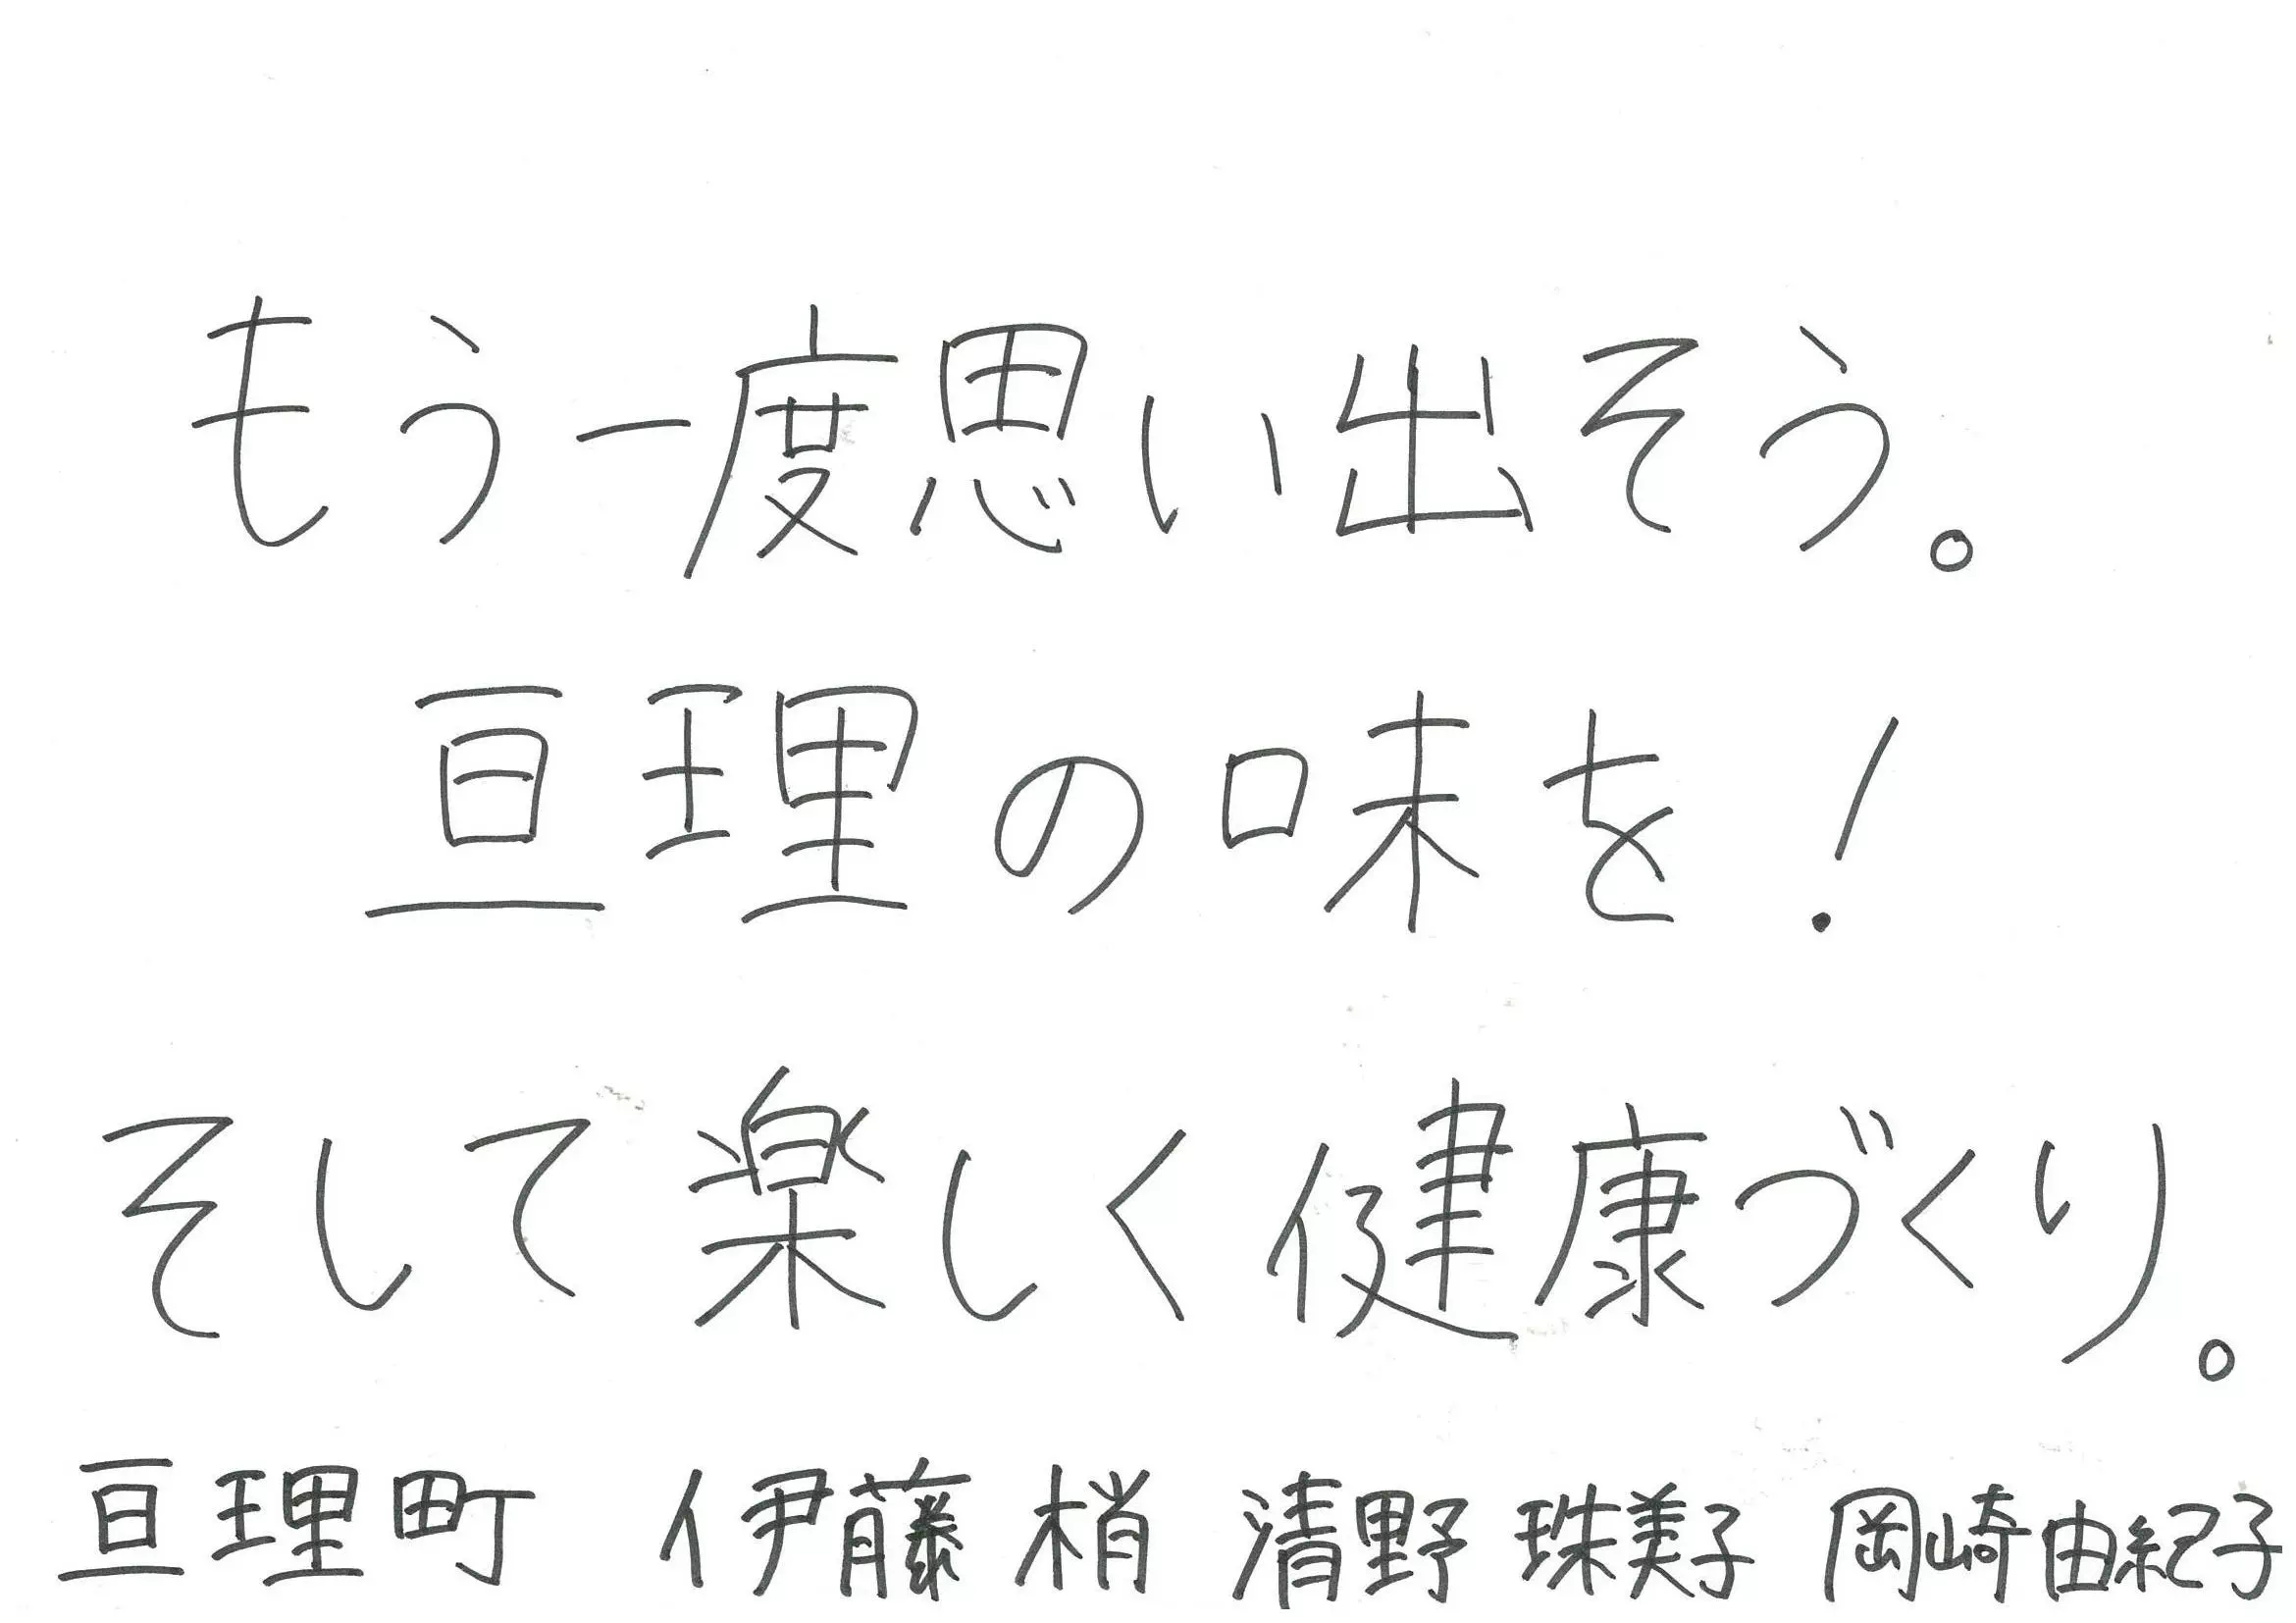 もう一度思い出そう。
亘理の味を!
そして楽しく健康づくり。
亘理町 伊藤梢 清野珠美子 岡崎由紀子